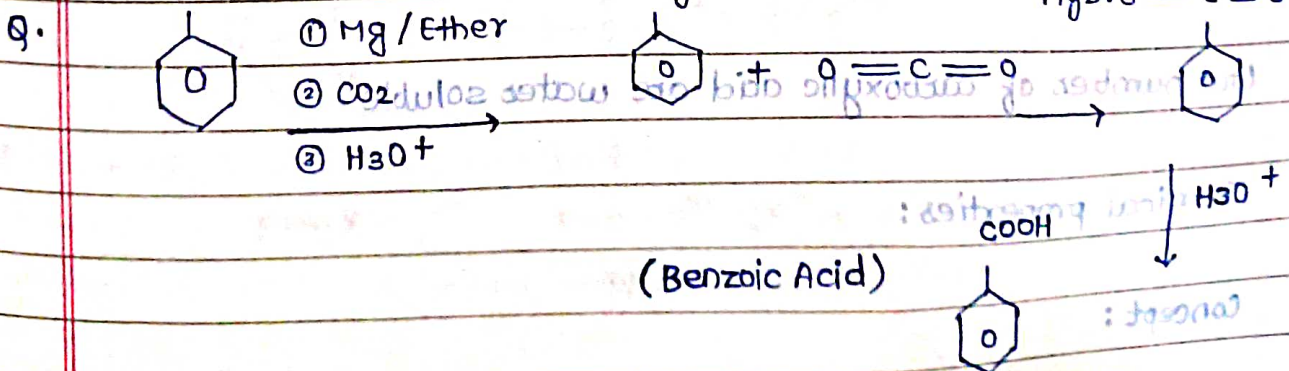 Q. ① Mg / Ether
② CO2 + O = C = O
③ H3O+
H3O+
COOH
(Benzoic Acid)